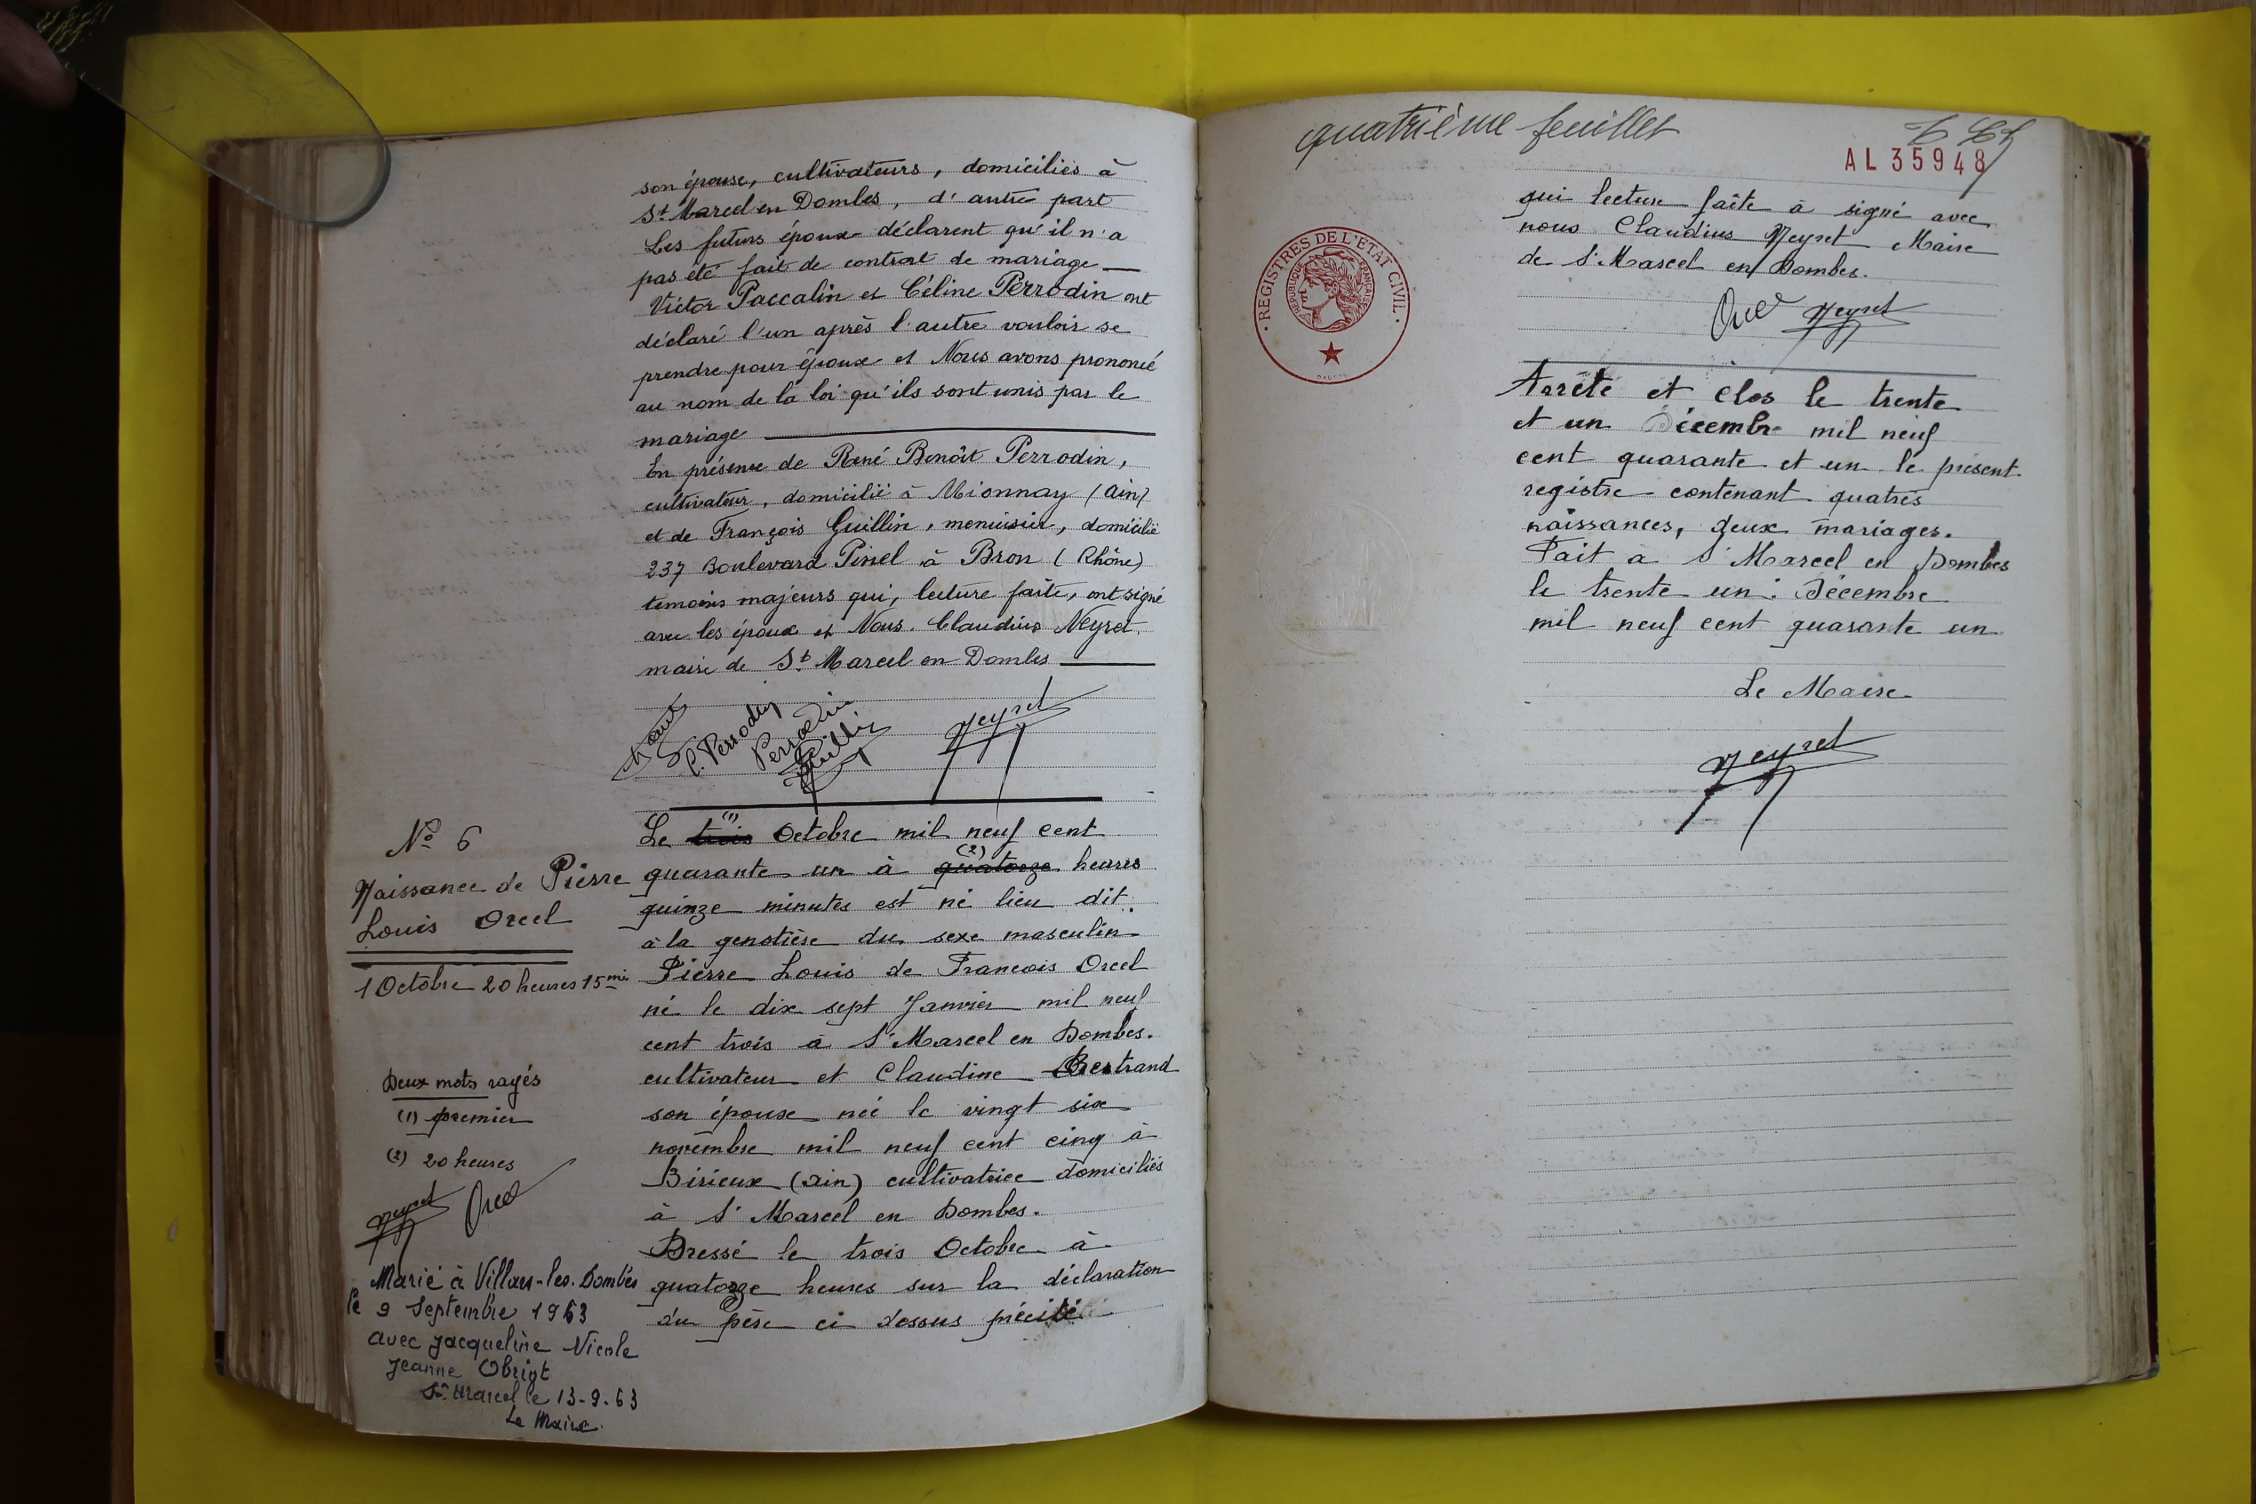 son épouse, cultivateurs, domiciliés à
St Marcel en Dombes, d'autre part
Les futurs époux déclarent qu'il n'a
pas été fait de contrat de mariage
Victor Paccalin et Céline Perrodin ont
déclaré l'un après l'autre vouloir se
prendre pour époux et Nous avons prononcé
au nom de la loi qu'ils sont unis par le
mariage
En présence de René Benoît Perrodin,
cultivateur, domicilié à Mionnay (Ain)
et de François Guillin, menuisier, domicilié
237 Boulevard Pinel à Bron (Rhône)
temoins majeurs qui, lecture faite, ont signé
avec les époux et Nous. Claudius Neyret.
maire de St Marcel en Dombes
C. Perrodin
Perrodin
Guillin
Neyret
No 6
Naissance de Pierre
Louis Orcel
1 Octobre 20 heures 15 mi
Deux mots rayés
(1) premier
(2) 20 heures
Neyret Orcel
Marié à Villars-les-Dombes
le 9 Septembre 1963
avec Jacqueline Nicole
Jeanne Obrigt
St Marcel le 13-9-63
Le Maire
Le trois (1) Octobre mil neuf cent
quarante un à quatorze (2) heures
quinze minutes est né lieu dit
à la genetière du sexe masculin
Pierre Louis de Francois Orcel
né le dix sept Janvier mil neuf
cent trois à St Marcel en Dombes.
cultivateur et Claudine Bertrand
son épouse née le vingt six
novembre mil neuf cent cinq à
Birieux (Ain) cultivatrice domiciliés
à St Marcel en Dombes.
Dressé le trois Octobre à
quatorze heures sur la déclaration
du père ci dessus précité
quatrième feuillet
AL 35948
REGISTRES DE L'ETAT CIVIL
REPUBLIQUE FRANÇAISE
qui lecture faite à signé avec
nous Claudius Neyret Maire
de St Marcel en Dombes.
Orcel Neyret
Arrêté et clos le trente
et un Décembre mil neuf
cent quarante et un le présent
registre contenant quatres
naissances, deux mariages.
Fait à St Marcel en Dombes
le trente un Décembre
mil neuf cent quarante un
Le Maire
Neyret